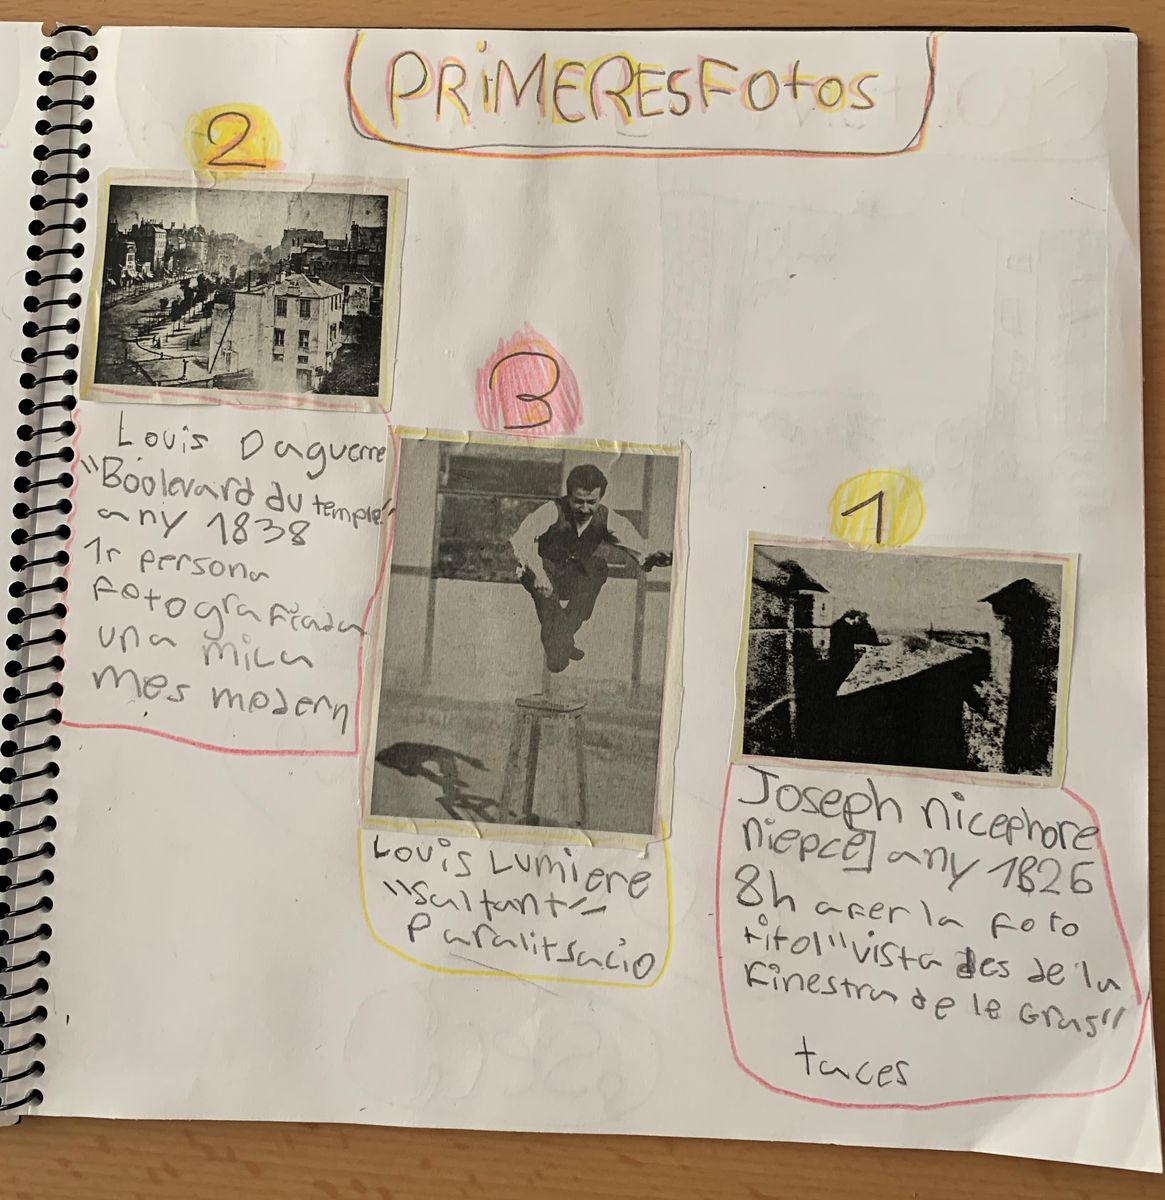 PRIMERES FOTOS
2
Louis Daguerre
"Boolevard du temple"
any 1838
1r persona
fotografiada
una mica
mes modern
3
Louis Lumiere
"Saltant"
Paralitsacio
1
Joseph nicephore
niepce] any 1826
8h a fer la foto
titol "vista des de la
finestra de le Gras"
taces